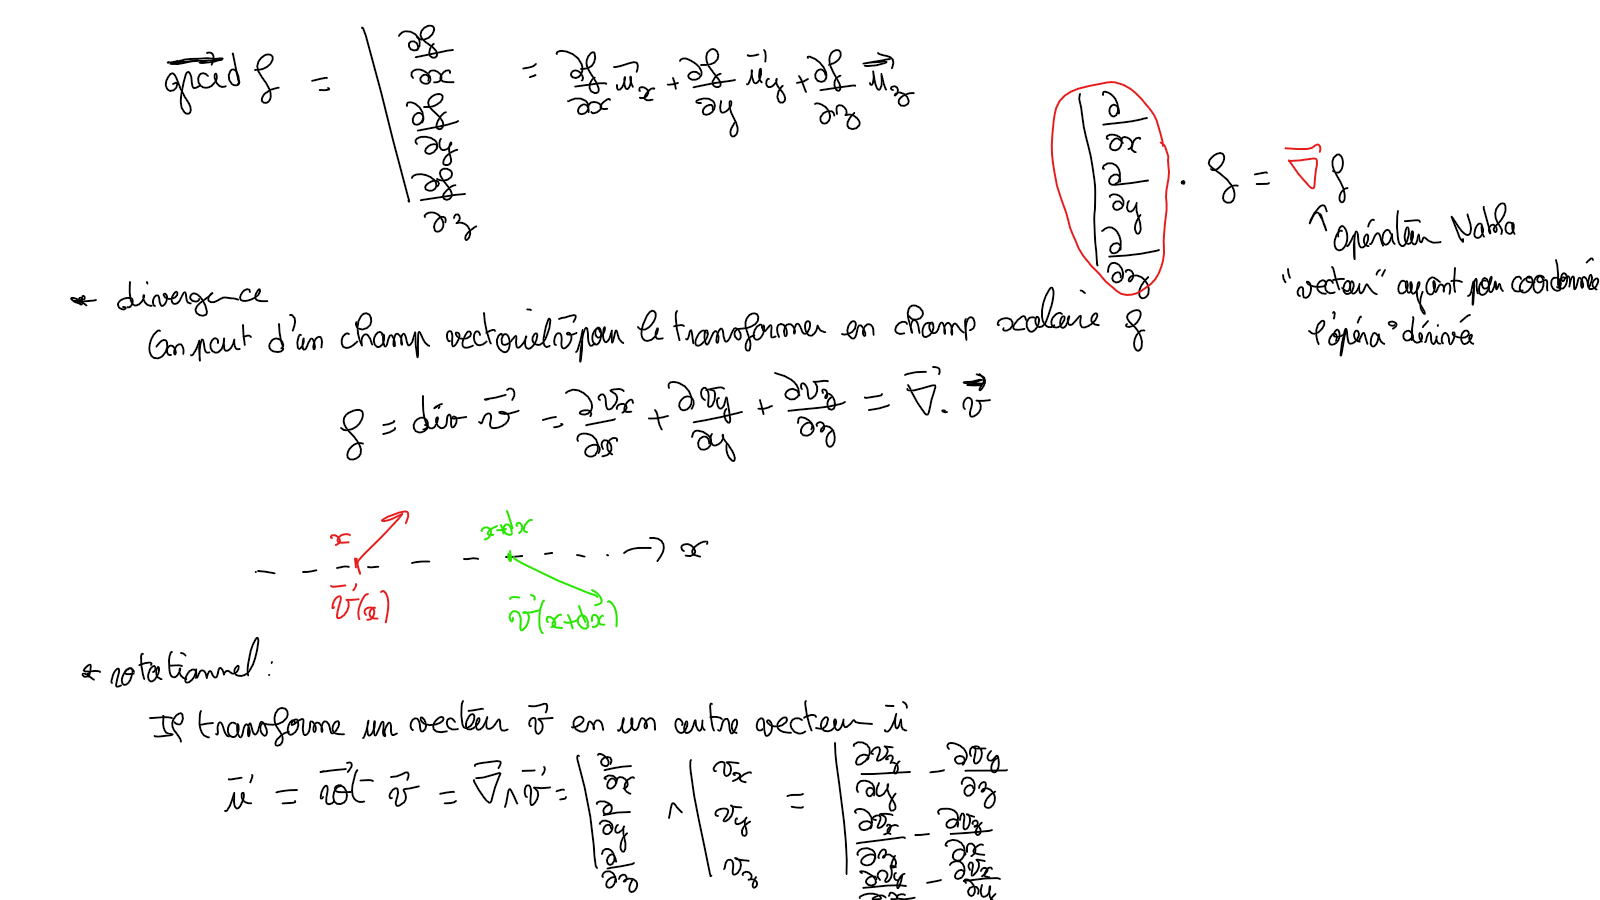 grad f = | ∂f/∂x ∂f/∂y ∂f/∂z = ∂f/∂x u⃗x + ∂f/∂y u⃗y + ∂f/∂z u⃗z
| ∂/∂x ∂/∂y ∂/∂z . f = ∇⃗ f
↑ Opérateur Nabla
"vecteur" ayant pour coordonnée
l'opéra° dérivée
* divergence
On part d'un champ vectoriel v⃗ pour le transformer en champ scalaire f
f = div v⃗ = ∂vx/∂x + ∂vy/∂y + ∂vz/∂z = ∇⃗ . v⃗
x
x+dx
→ x
v⃗(x)
v⃗(x+dx)
* rotationnel :
Il transforme un vecteur v⃗ en un autre vecteur u⃗
u⃗ = rot v⃗ = ∇⃗ ∧ v⃗ = | ∂/∂x ∂/∂y ∂/∂z ∧ | vx vy vz = | ∂vz/∂y - ∂vy/∂z ∂vx/∂z - ∂vz/∂x ∂vy/∂x - ∂vx/∂y